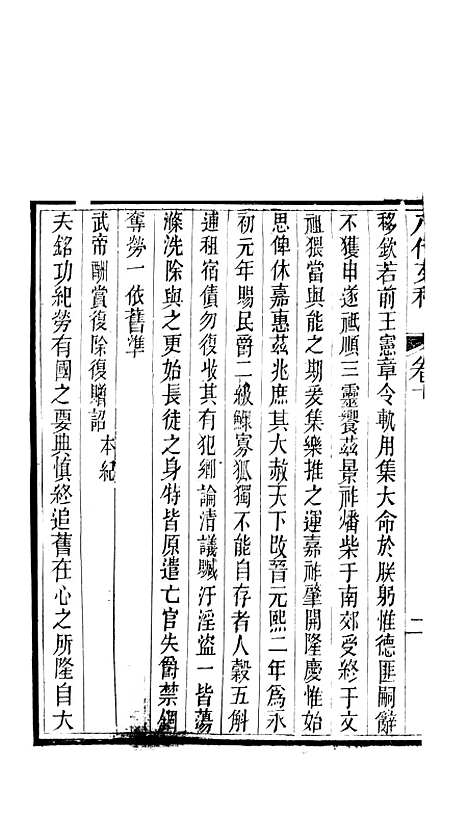 八代文粹　卷十　二
移欽若前王憲章令軌用集大命於朕躬惟德匪嗣辭
不獲申遂祗順三靈饗茲景祚燔柴于南郊受終于文
祖猥當與能之期爰集樂推之運嘉祚肇開隆慶惟始
思俾休嘉惠茲兆庶其大赦天下改晉元熙二年爲永
初元年賜民爵二級鰥寡孤獨不能自存者人穀五斛
逋租宿債勿復收其有犯鄉論清議贓汙淫盜一皆蕩
滌洗除與之更始長徒之身特皆原遣亡官失爵禁錮
奪勞一依舊準
武帝酬賞復除復贈詔本紀
夫銘功紀勞有國之要典慎終追舊在心之所隆自大